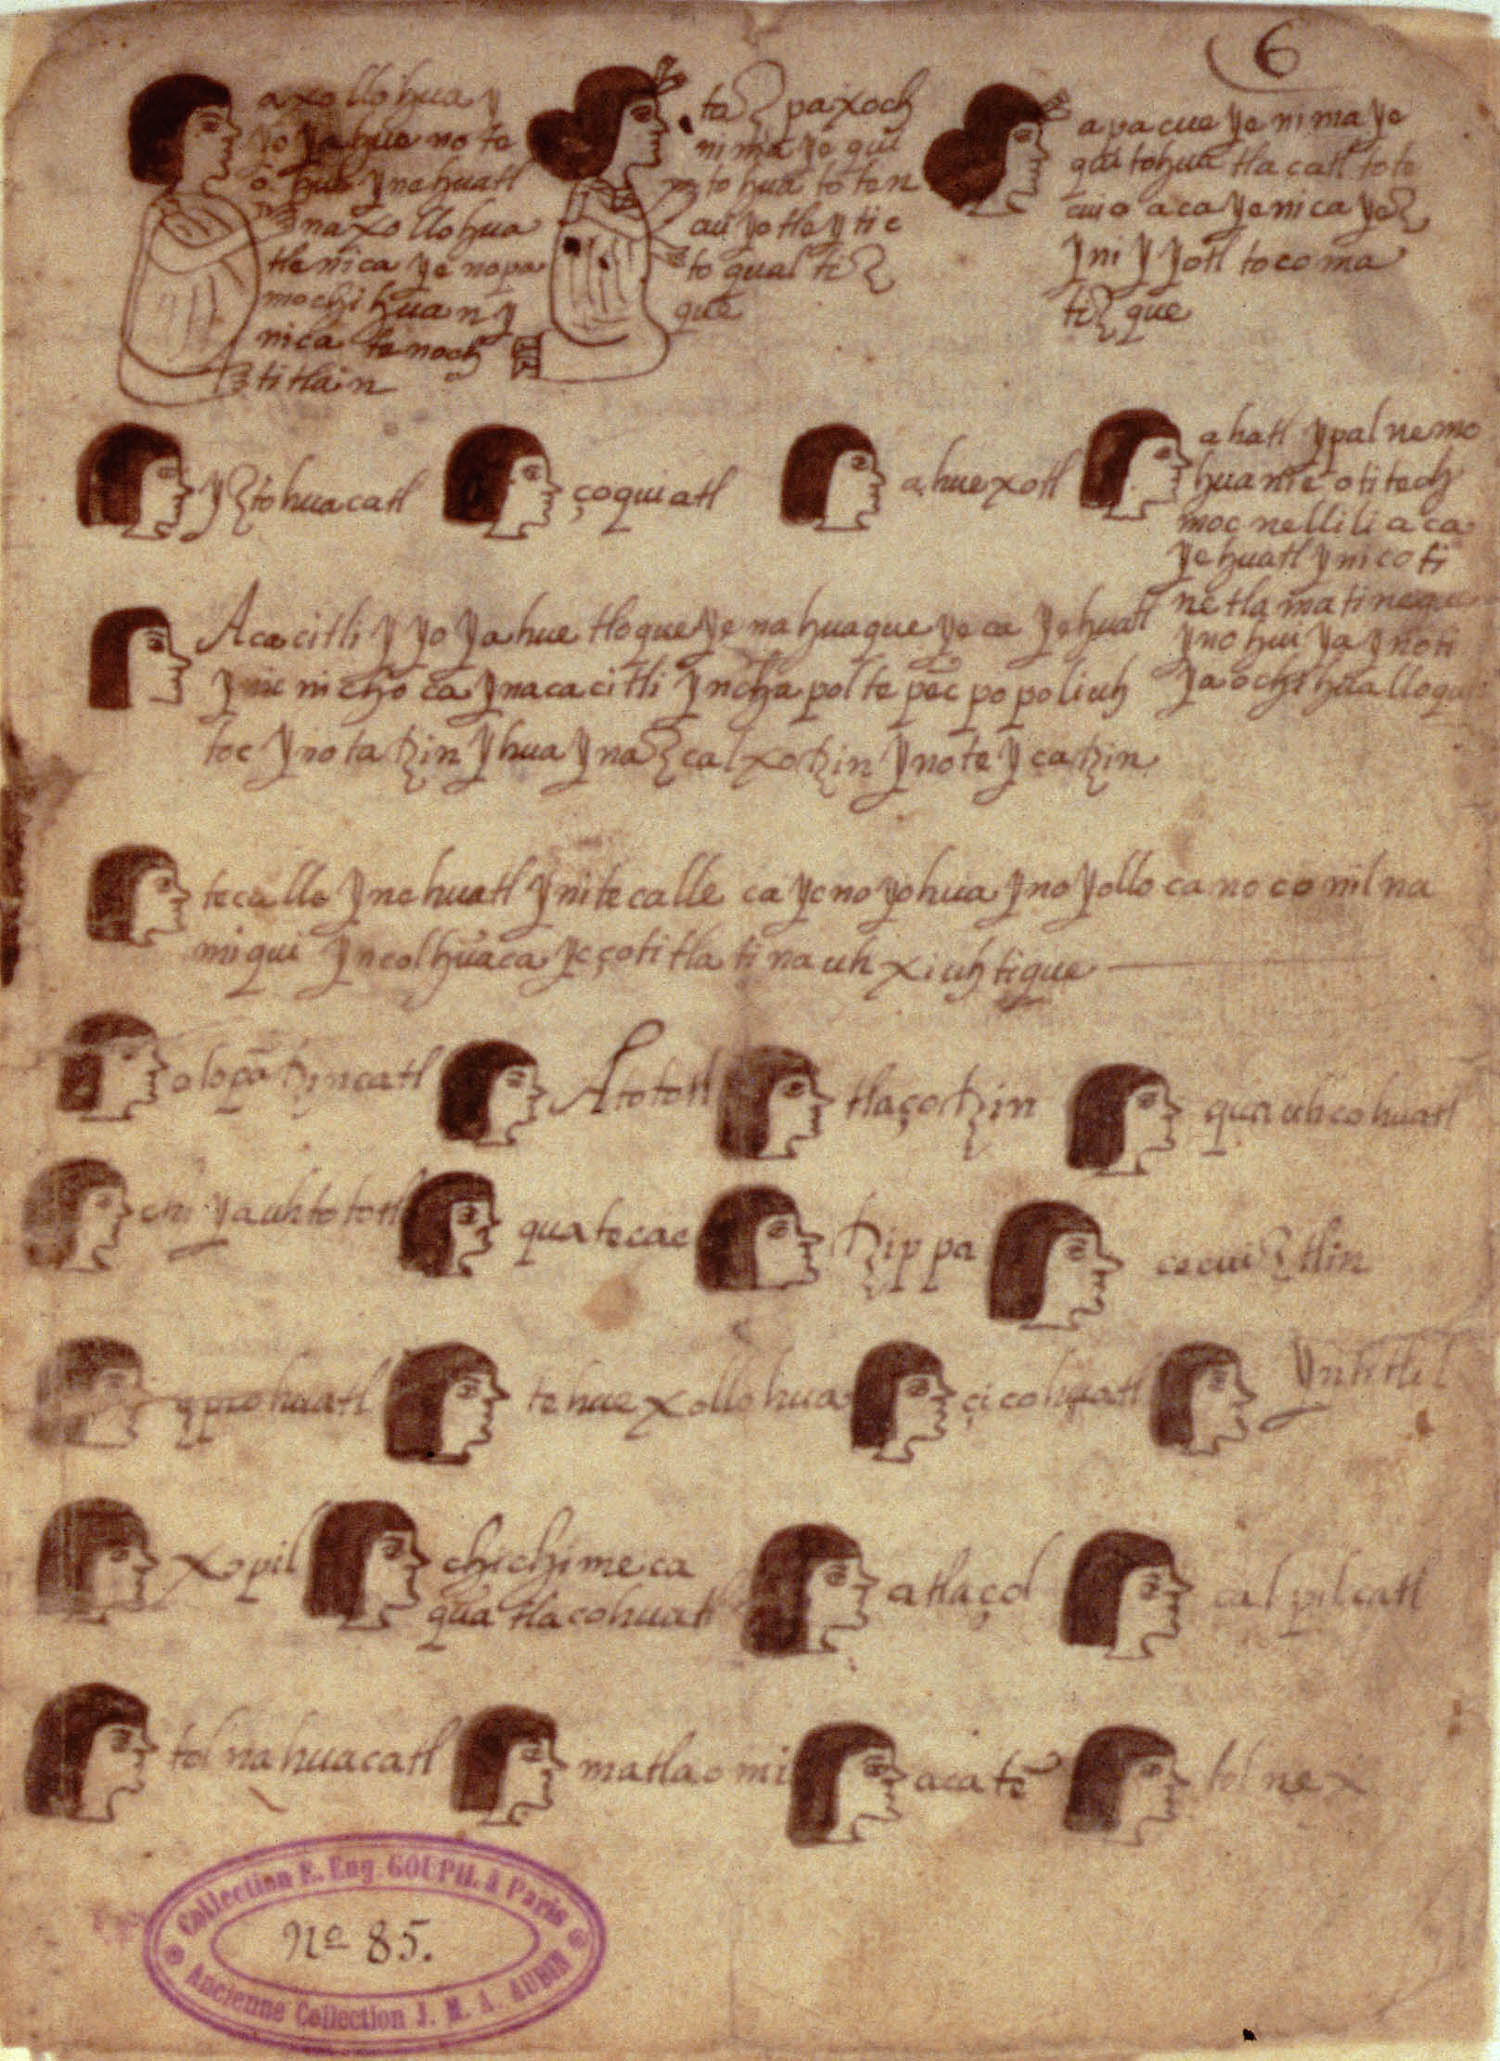 6
axollohua y
yo yahue no te
o huh ynehuatl
naxollohua
tlenica ye nopa
mochihuan y
nica tenoch
titlain
taz paxoch
nima ye qui
tohua toten
auyotleytic
to qualtiz
que
apacue ye nima ye
quitohua tlacatl tote
cuio aca yenica yez
yni y yotl tocoma
tiz que
yztohuacatl
çoquiatl
ahuexotl
ahatl ypalnemo
huanie otitech
mocnellili aca
yehuatl ynicoti
netlamatineque
ynohui ya ynoti
yaochihualloque
Acacitli y yo yahue tloqueye nahuaque yeca yehuatl
ynic nichoca ynacacitli ynchapoltepec popoliuh
toc ynotatzin yhua ynazcalxotzin ynoteycatzin
tecallo ynehuatl ynitecalle ca ycnoyohua ynoyollo canoconilna
miqui yncolhuaca ycçotitlatinauh xiuhtique
olopātzincatl
Atototl
tlaçotzin
quauhcohuatl
chiyauhtototl
quatecac
tzippa
cecuiztlin
ypicohuatl
tehuexollohua
çicohuatl
yntitlil
xopil
chichimeca
quatlacohuatl
atlaçol
calpilcatl
tolnahuacatl
matlaomi
acatē
tolnex
Collection E. Eug. GOUPIL à Paris
Nº 85.
Ancienne Collection J. M. A. AUBIN